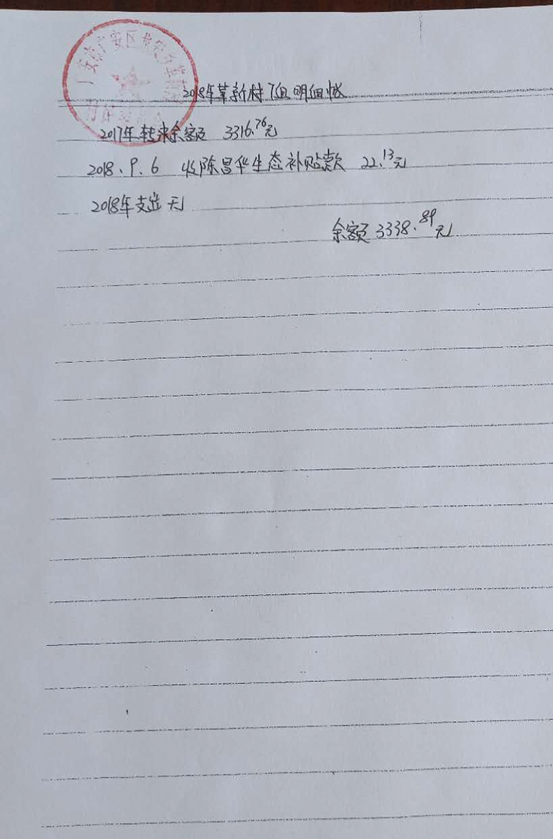 2018年革新村7组明细帐
2017年转来余额 3316.76元
2018.9.6 收陈昌华生态补贴款 22.13元
2018年支出 无
余额 3338.89元
广安市广安区